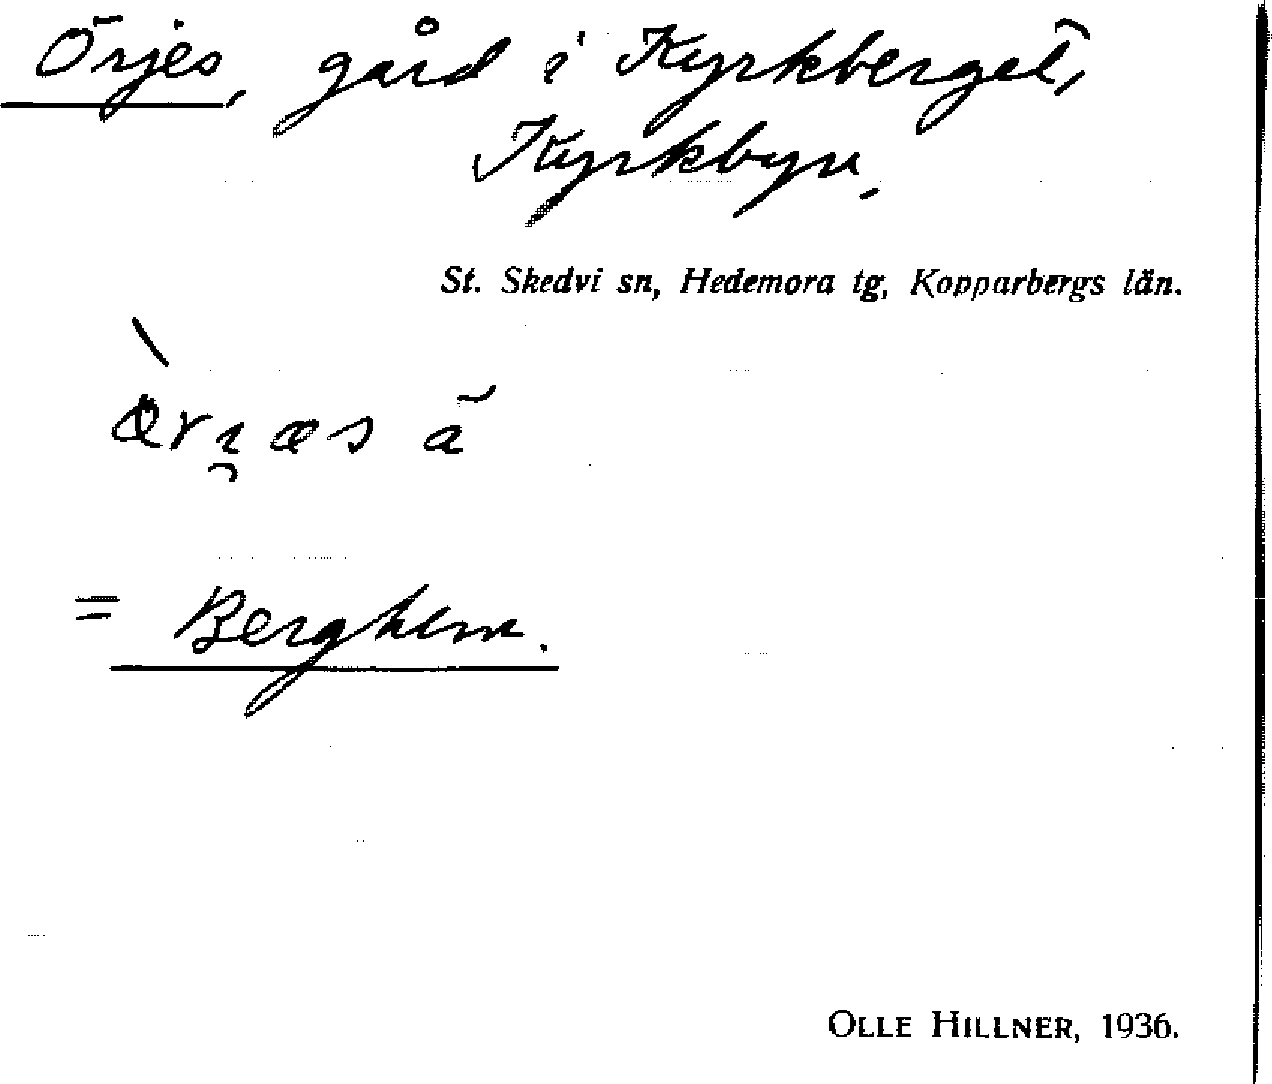 Örjes, gård i Kyrkberget,
Kyrkbyn.
St. Skedvi sn, Hedemora tg, Kopparbergs län.
= Berghem.
OLLE HILLNER, 1936.